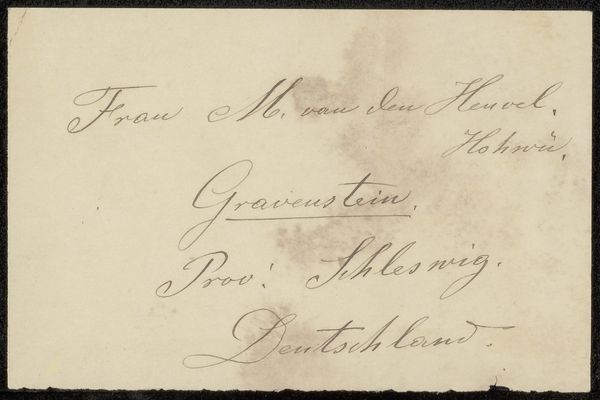 Frau M. van den Heuvel.
Hohwü.
Gravenstein.
Prov: Schleswig.
Deutschland.